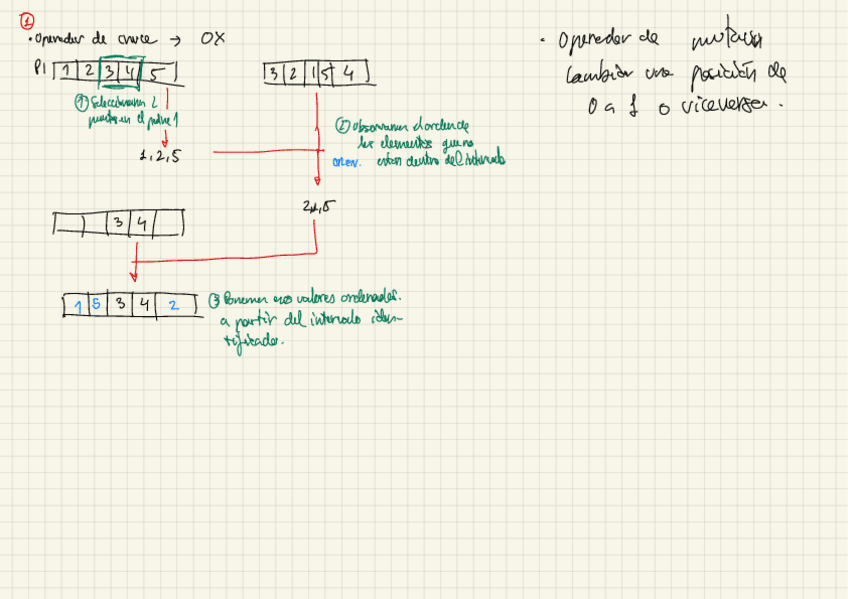 1
• Operador de cruce → OX
P1 1 2 3 4 5
3 2 1 5 4
① Seleccionamos 2
puntos en el padre 1
1,2,5
② Observamos el orden de
los elementos que no
están dentro del intervalo
2,1,5
3 4
1 5 3 4 2
③ Ponemos esos valores ordenados.
a partir del intervalo iden-
tificado.
• Operador de mutación
Cambiar una posición de
0 a 1 o viceversa.